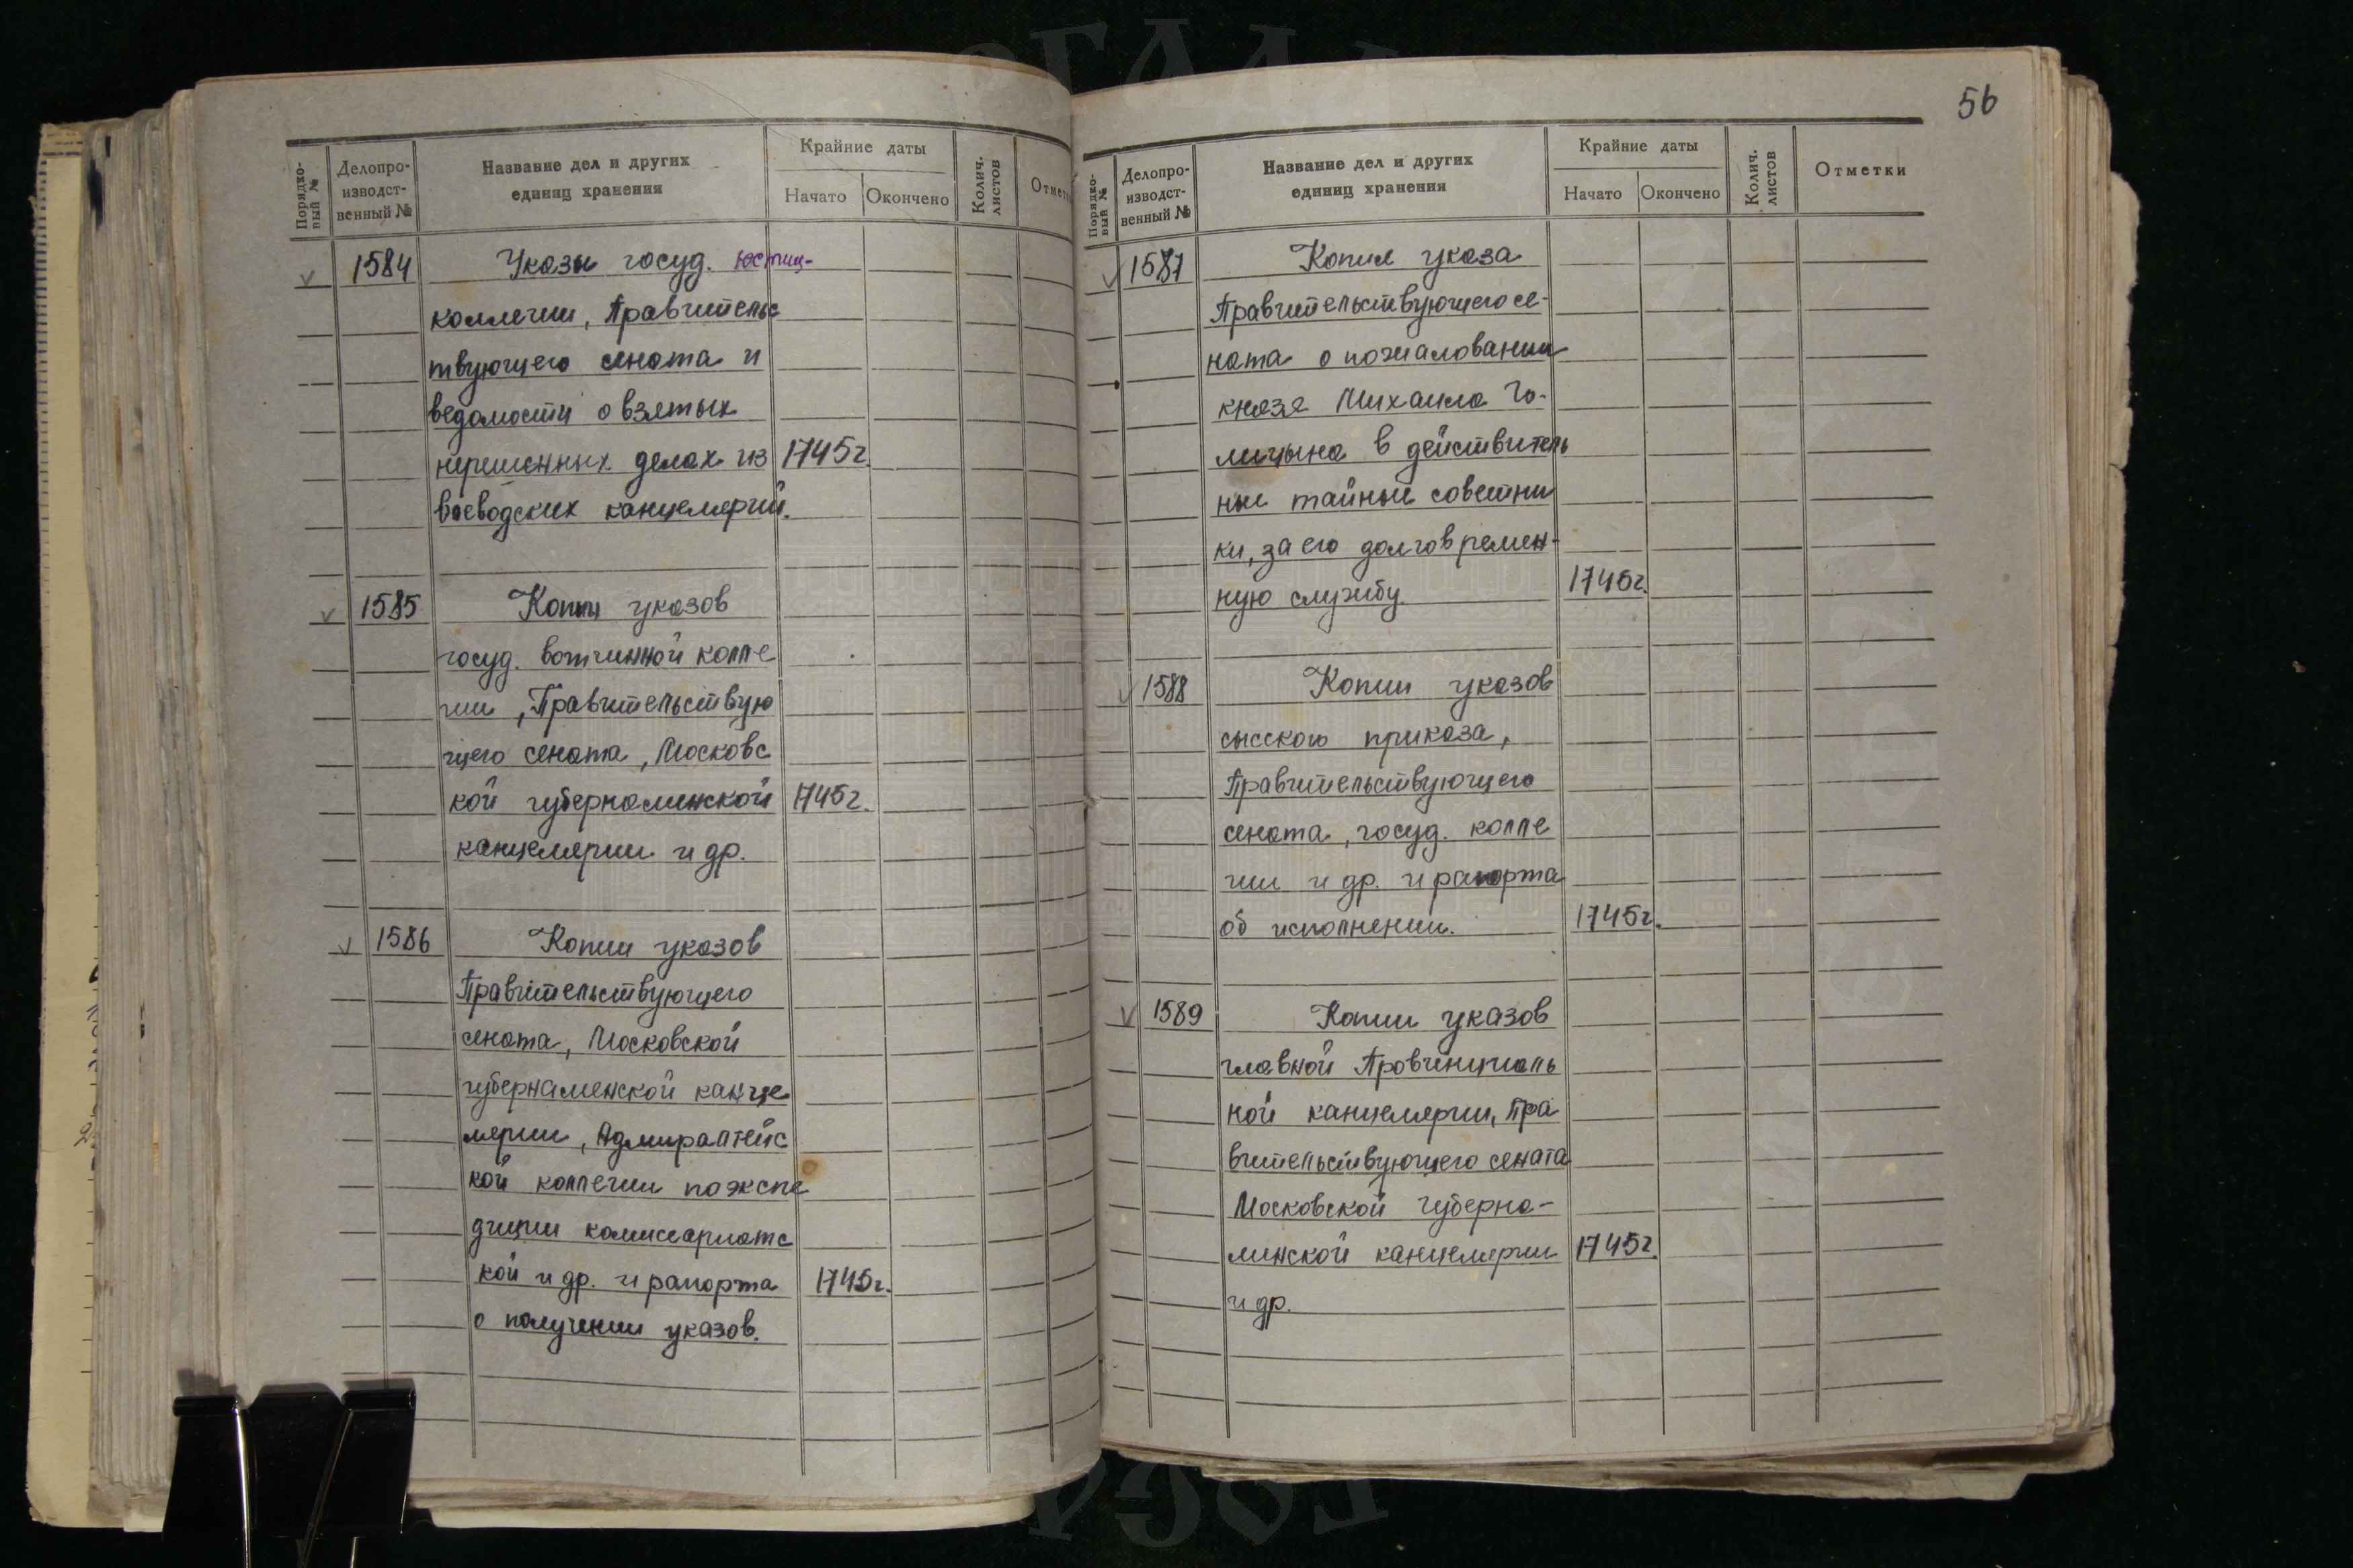 Порядко-
вый №
Делопро-
изводст-
венный №
Название дел и других
единиц хранения
Крайние даты
Начато
Окончено
Колич.
листов
Отметк
V 1584 Указы госуд. юстиц-
коллегии, Правительс
твующего сената и
ведомости о взятых
нерешенных делах из 1745г.
воеводских канцелярий.
V 1585 Копии указов
госуд. вотчинной колле
гии, Правительствую
щего сената, Московс
кой губерналинской 1745г.
канцелярии и др.
V 1586 Копии указов
Правительствующего
сената, Московской
губернаменской канце
лярии, Адмиралтейс
кой коллегии по экспе
диции комиссариатс
кой и др. и рапорта 1745г.
о получении указов.
56
Порядко-
вый №
Делопро-
изводст-
венный №
Название дел и других
единиц хранения
Крайние даты
Начато
Окончено
Колич.
листов
Отметки
V 1587 Копия указа
Правительствующего се-
ната о пожаловании
князя Михаила Го-
лицына в действитель
ные тайные советни
ки, за его долговремен-
ную службу. 1745г.
V 1588 Копии указов
сысского приказа,
Правительствующего
сената, госуд. колле
гии и др. и рапорта
об исполнении. 1745г.
V 1589 Копии указов
главной Провинциаль
ной канцелярии, Пра
вительствующего сената
Московской губерна-
линской канцелярии 1745г.
и др.